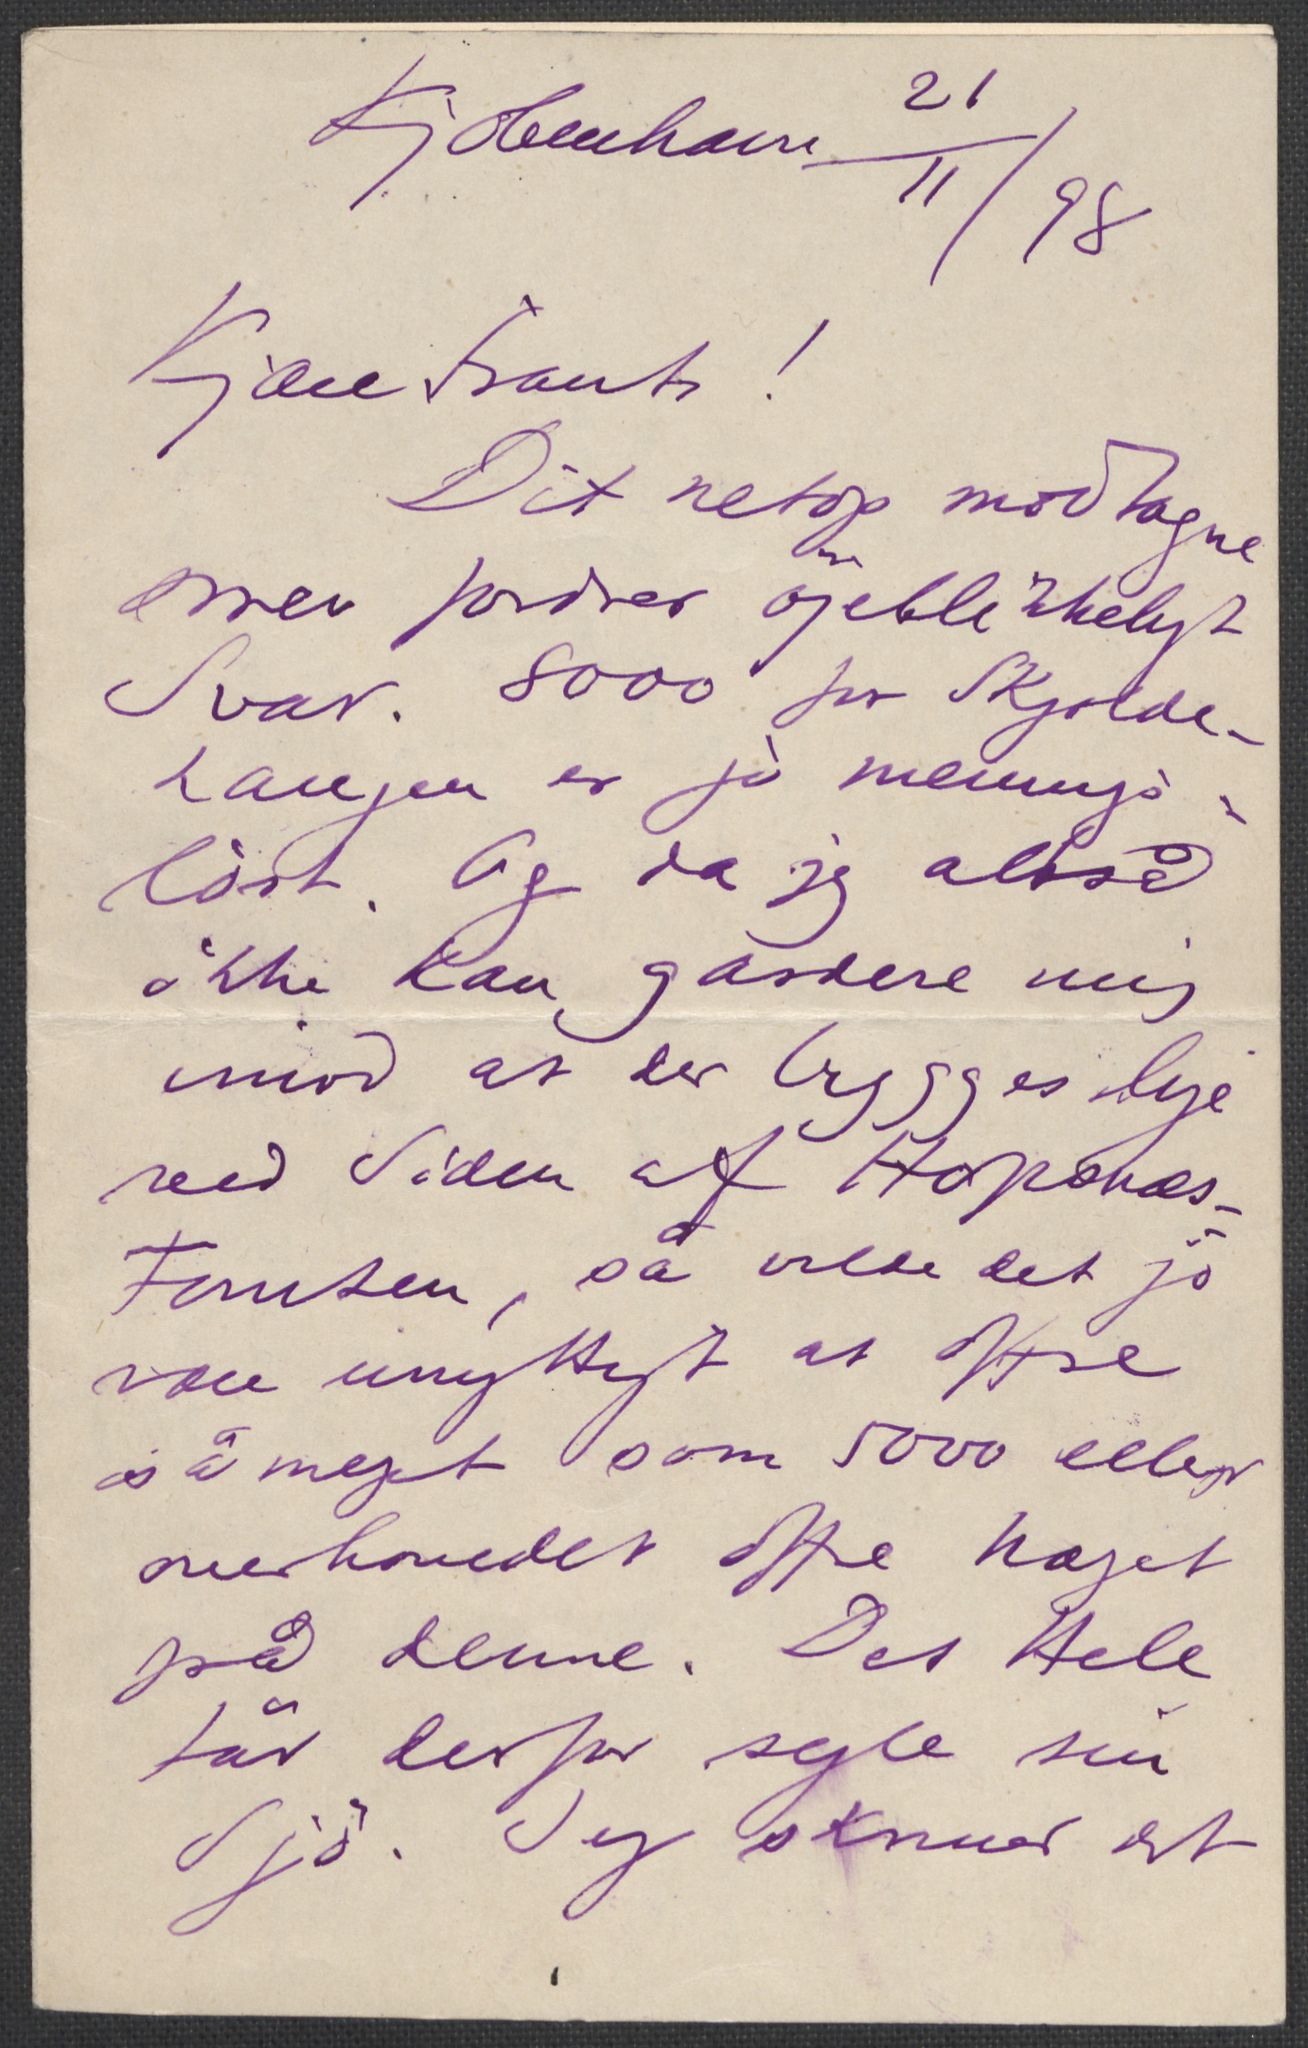 Kjøbenhavn 21/11/98
Kjære Frants!
Dit netop modtagne
Brev fordrer öjeblikkeligt
Svar. 8000 for Skjolde-
haugen er jo menings-
löst. Og da jeg altså
ikke kan gardere mig
imod at der bygges lige
ved Siden af Hopsnæs-
Tomten, så vilde det jo
være unyttigt at offre
så meget som 5000 eller
overhovedet offre noget
på denne. Det Hele
får derfor sejle sin
Sjö. Jeg skriver det